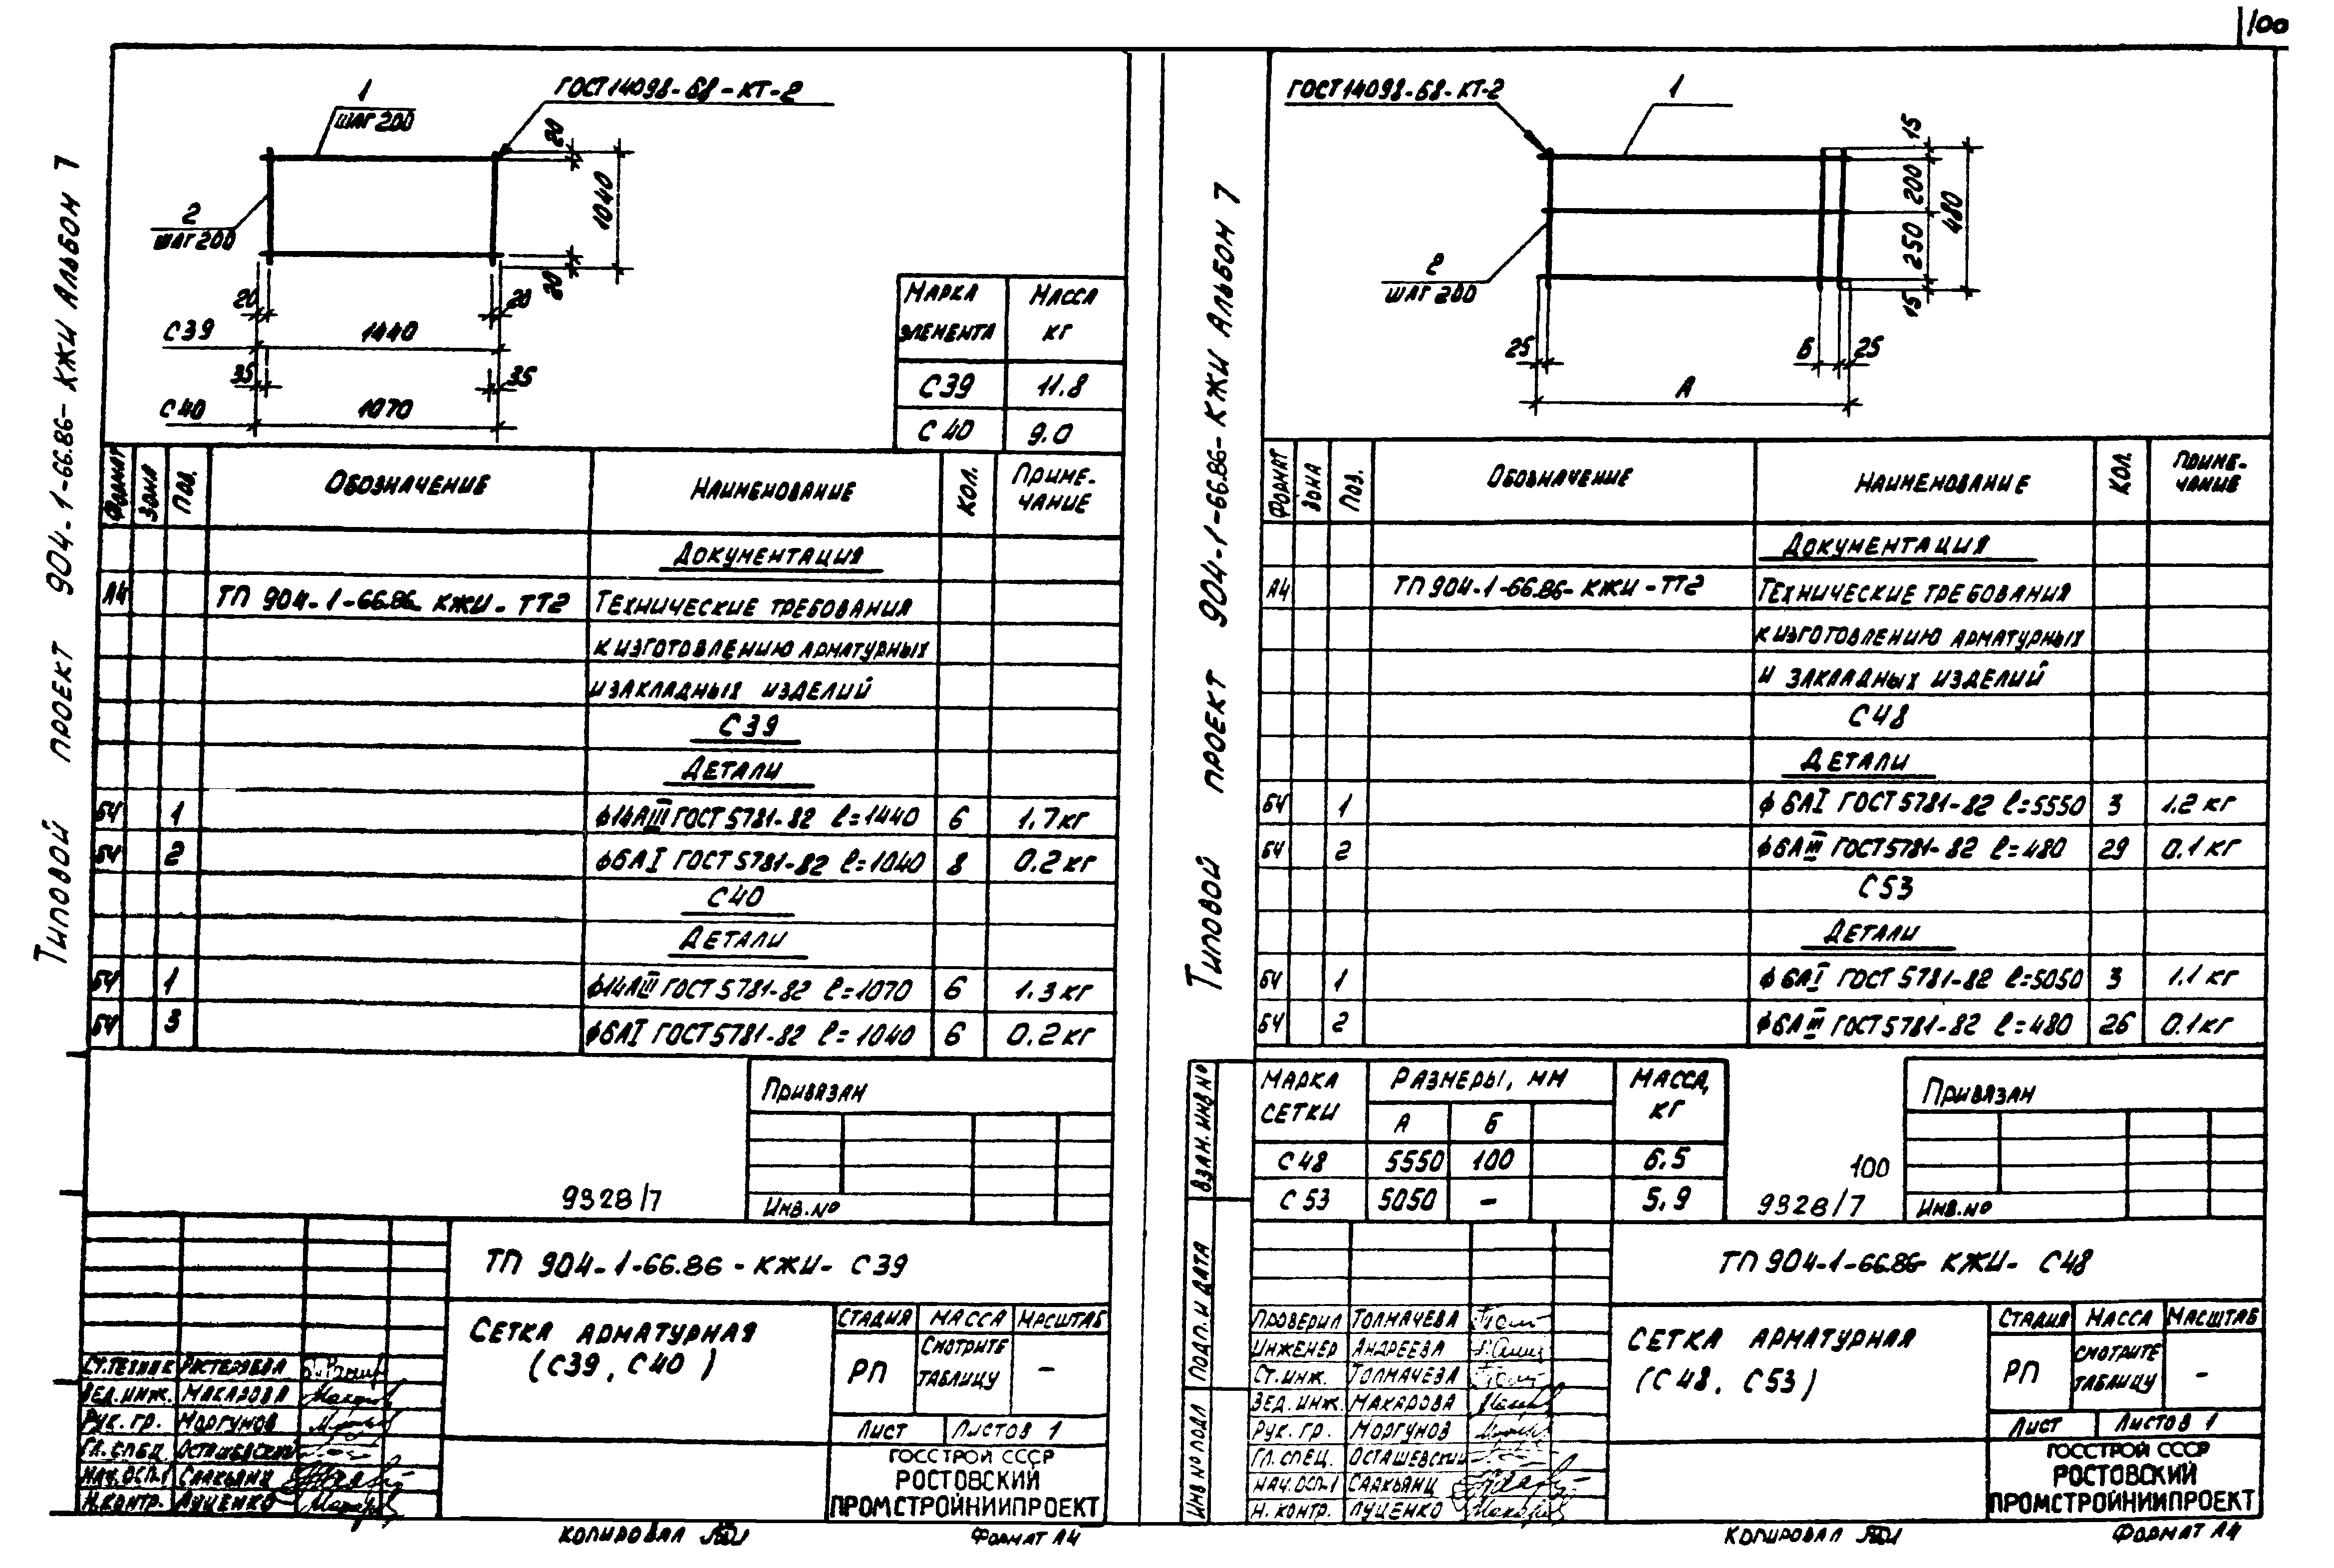 100
Типовой проект 904-1-66.86-КЖИ Альбом 7
1
шаг 200
ГОСТ 14098-68-КТ-2
2
шаг 200
20
1040
20
20
20
С39
1440
35
35
С40
1070
Марка элемента
Масса кг
С39 11.8
С40 9.0
Формат Зона Поз. Обозначение Наименование Кол. Примечание
Документация
А4 ТП 904-1-66.86-КЖИ-ТТ2 Технические требования
к изготовлению арматурных
и закладных изделий
С39
Детали
БЧ 1 ф14АIII ГОСТ 5781-82 ℓ=1440 6 1.7кг
БЧ 2 ф6АI ГОСТ 5781-82 ℓ=1040 8 0.2кг
С40
Детали
БЧ 1 ф14АIII ГОСТ 5781-82 ℓ=1070 6 1.3кг
БЧ 3 ф6АI ГОСТ 5781-82 ℓ=1040 6 0.2кг
Привязан
9328/7
Инв.№
ТП 904-1-66.86-КЖИ-С39
Сетка арматурная
(С39, С40)
Стадия Масса Масштаб
РП Смотрите таблицу -
Лист Листов 1
ГОССТРОЙ СССР
РОСТОВСКИЙ
ПРОМСТРОЙНИИПРОЕКТ
Ст.техник
Вед.инж. Макарова
Рук.гр. Моргунов
Гл.спец. Осташевский
Нач.ОСП-1 Саакьянц
Н.контр. Луценко
Копировал
Формат А4
Типовой проект 904-1-66.86-КЖИ Альбом 7
ГОСТ 14098-68-КТ-2
1
2
шаг 200
15
200
250
15
480
25
Б
25
А
Формат Зона Поз. Обозначение Наименование Кол. Примечание
Документация
А4 ТП 904-1-66.86-КЖИ-ТТ2 Технические требования
к изготовлению арматурных
и закладных изделий
С48
Детали
БЧ 1 ф6АI ГОСТ 5781-82 ℓ=5550 3 1.2кг
БЧ 2 ф6АIII ГОСТ 5781-82 ℓ=480 29 0.1кг
С53
Детали
БЧ 1 ф6АI ГОСТ 5781-82 ℓ=5050 3 1.1кг
БЧ 2 ф6АIII ГОСТ 5781-82 ℓ=480 26 0.1кг
Марка сетки Размеры, мм Масса, кг
А Б
С48 5550 100 6.5
С53 5050 - 5.9
100
9328/7
Привязан
Инв.№
Взам.инв.№
Подп. и дата
Инв.№ подл
ТП 904-1-66.86-КЖИ-С48
Сетка арматурная
(С48, С53)
Стадия Масса Масштаб
РП Смотрите таблицу -
Лист Листов 1
ГОССТРОЙ СССР
РОСТОВСКИЙ
ПРОМСТРОЙНИИПРОЕКТ
Проверил Толмачева
Инженер Андреева
Ст.инж. Толмачева
Вед.инж. Макарова
Рук.гр. Моргунов
Гл.спец. Осташевский
Нач.ОСП-1 Саакьянц
Н.контр. Луценко
Копировал
Формат А4